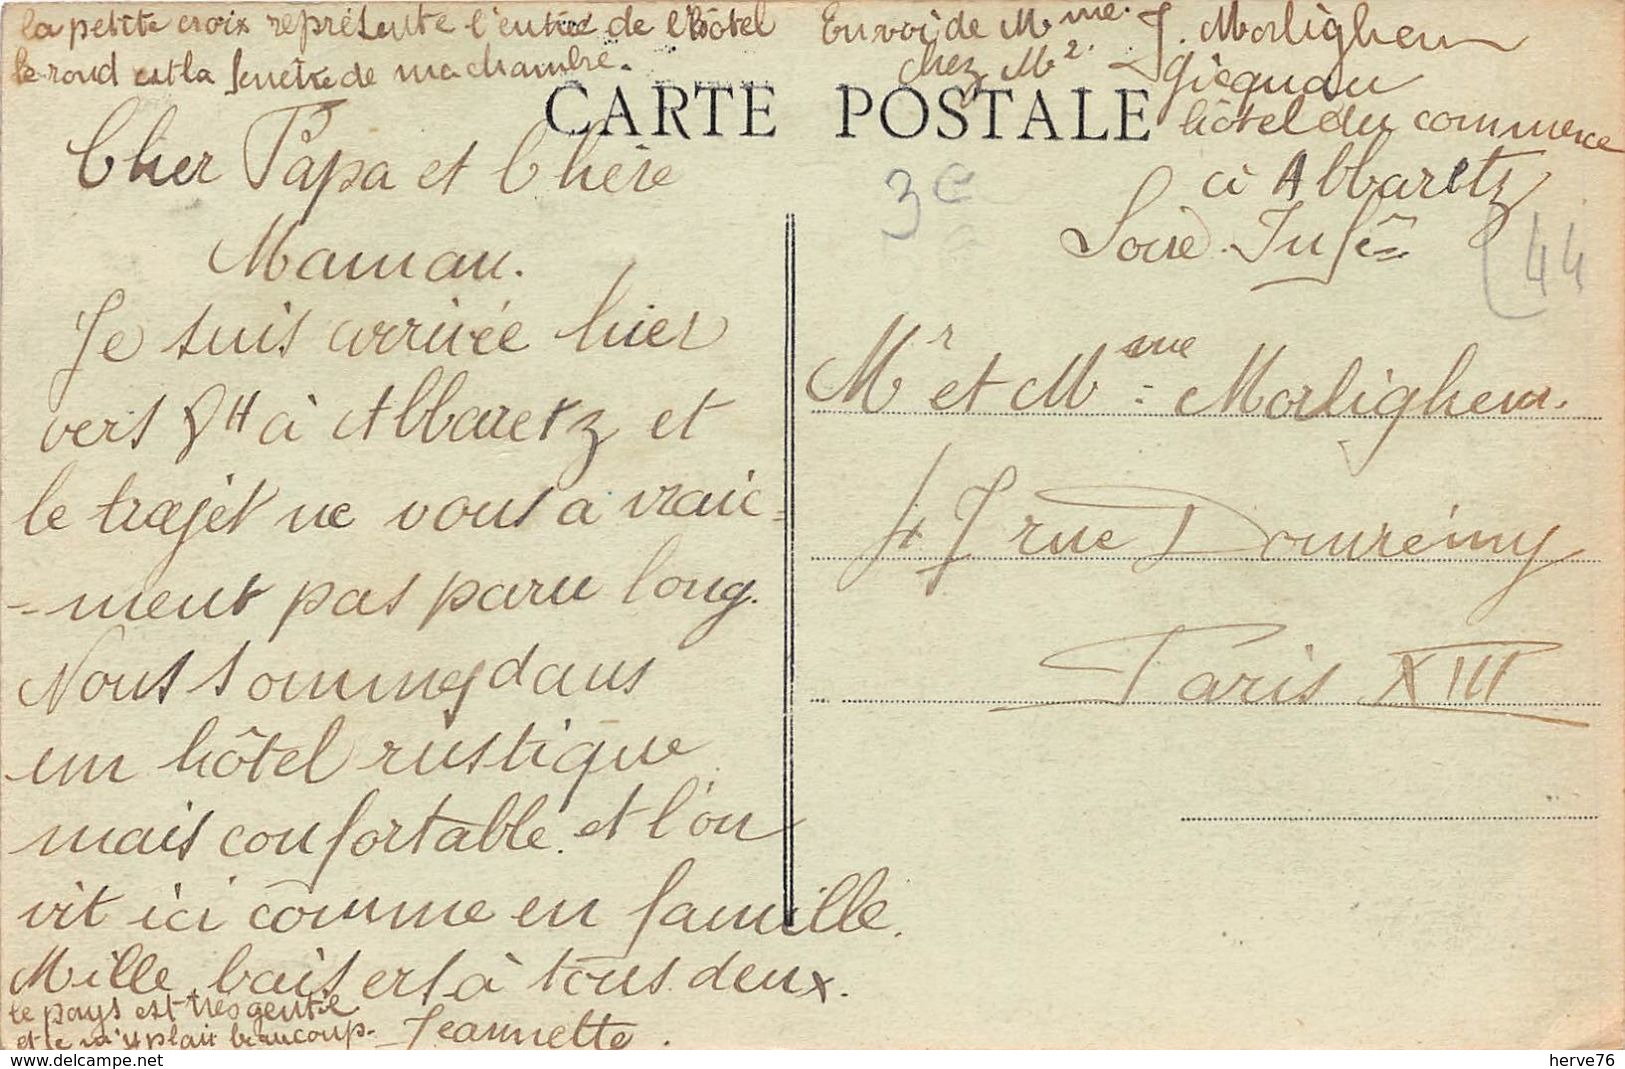 la petite croix représente l'entrée de l'Hôtel
le rond est la fenêtre de ma chambre.
Envoi de Mme. J. Morlighem
chez Mr. Gicquau
hôtel du commerce
à Abbaretz
Loire Infre
CARTE POSTALE
3€
44
Cher Papa et Chère
Maman.
Je suis arrivée hier
vers 8H à Abbaretz et
le trajet ne vous a vrai-
-ment pas paru long.
Nous sommes dans
un hôtel rustique
mais confortable. et l'on
vit ici comme en famille.
Mille baisers à tous deux.
le pays est très gentil
et je m'y plait beaucoup.
Jeannette.
Mr et Mme Morlighem.
47 rue Domrémy
Paris XIII
herve76